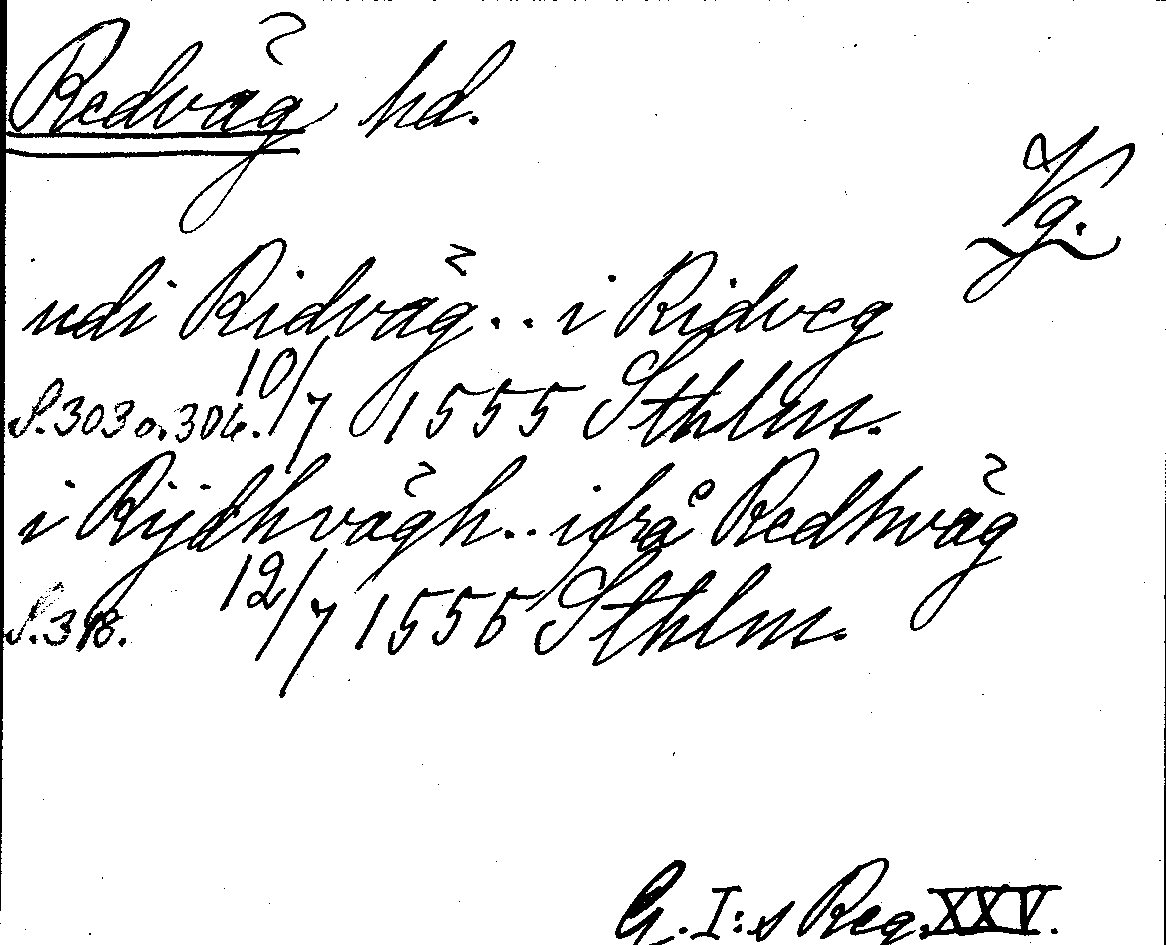 Redväg hd.
Vg.
udi Ridväg.. i Ridveg
S. 303 o. 304. 10/7 1555 Sthlm.
i Rijdhvägh.. ifrå Redhväg
S. 318. 12/7 1555 Sthlm.
G. I:s Reg. XXV.